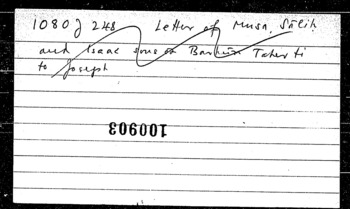 1080 J 248 Letter of Musa, Sāliḥ
and Isaac sons of Barhūn Taherti
to Joseph
100903